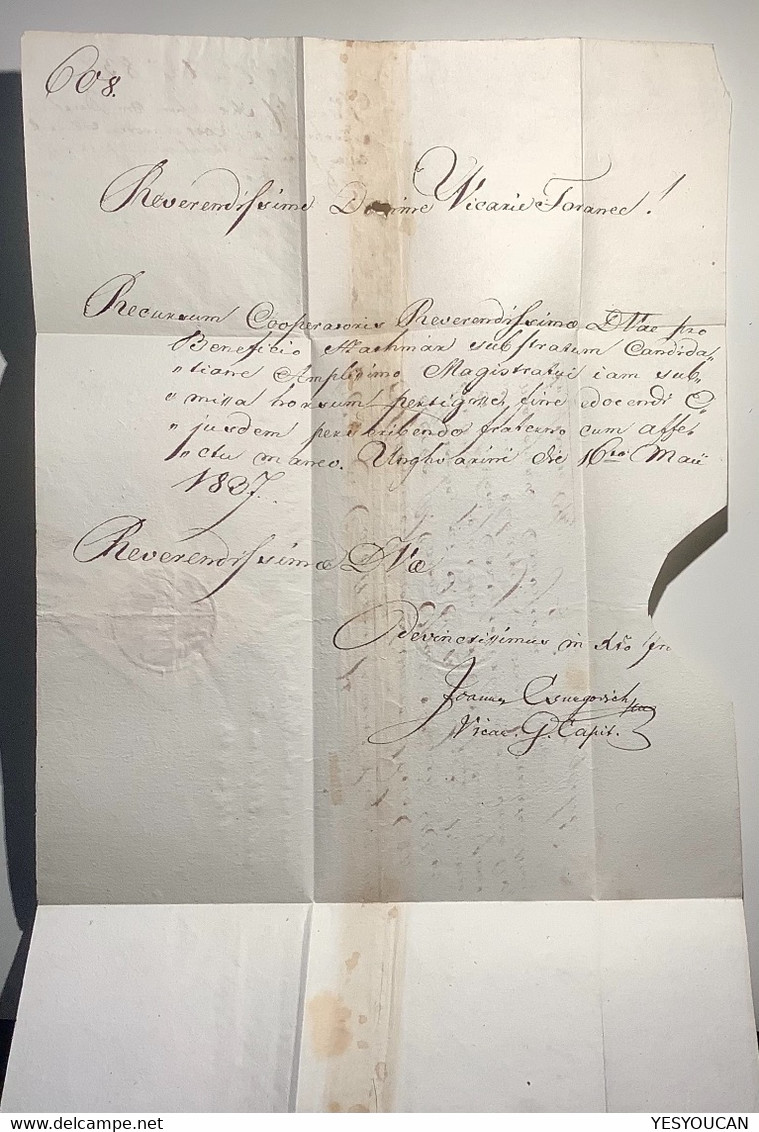 608.
Reverendissime Domine Vicarie Foranee!
Recursum Cooperatoris Reverendissimæ DVae pro
Beneficio substratum Candida„
„tione Amplissimo Magistratui iam sub„
„missa horsum fine edocendi E„
„jusdem perscribendo fraterno cum affe„
„ctu maneo. Unghvarini die 16ta Maii
1837.
Reverendissimæ DVæ
Devinctissimus in Xto fr
Joannes Csurgovich
Vicar. G. Capit.
www.delcampe.net
YESYOUCAN